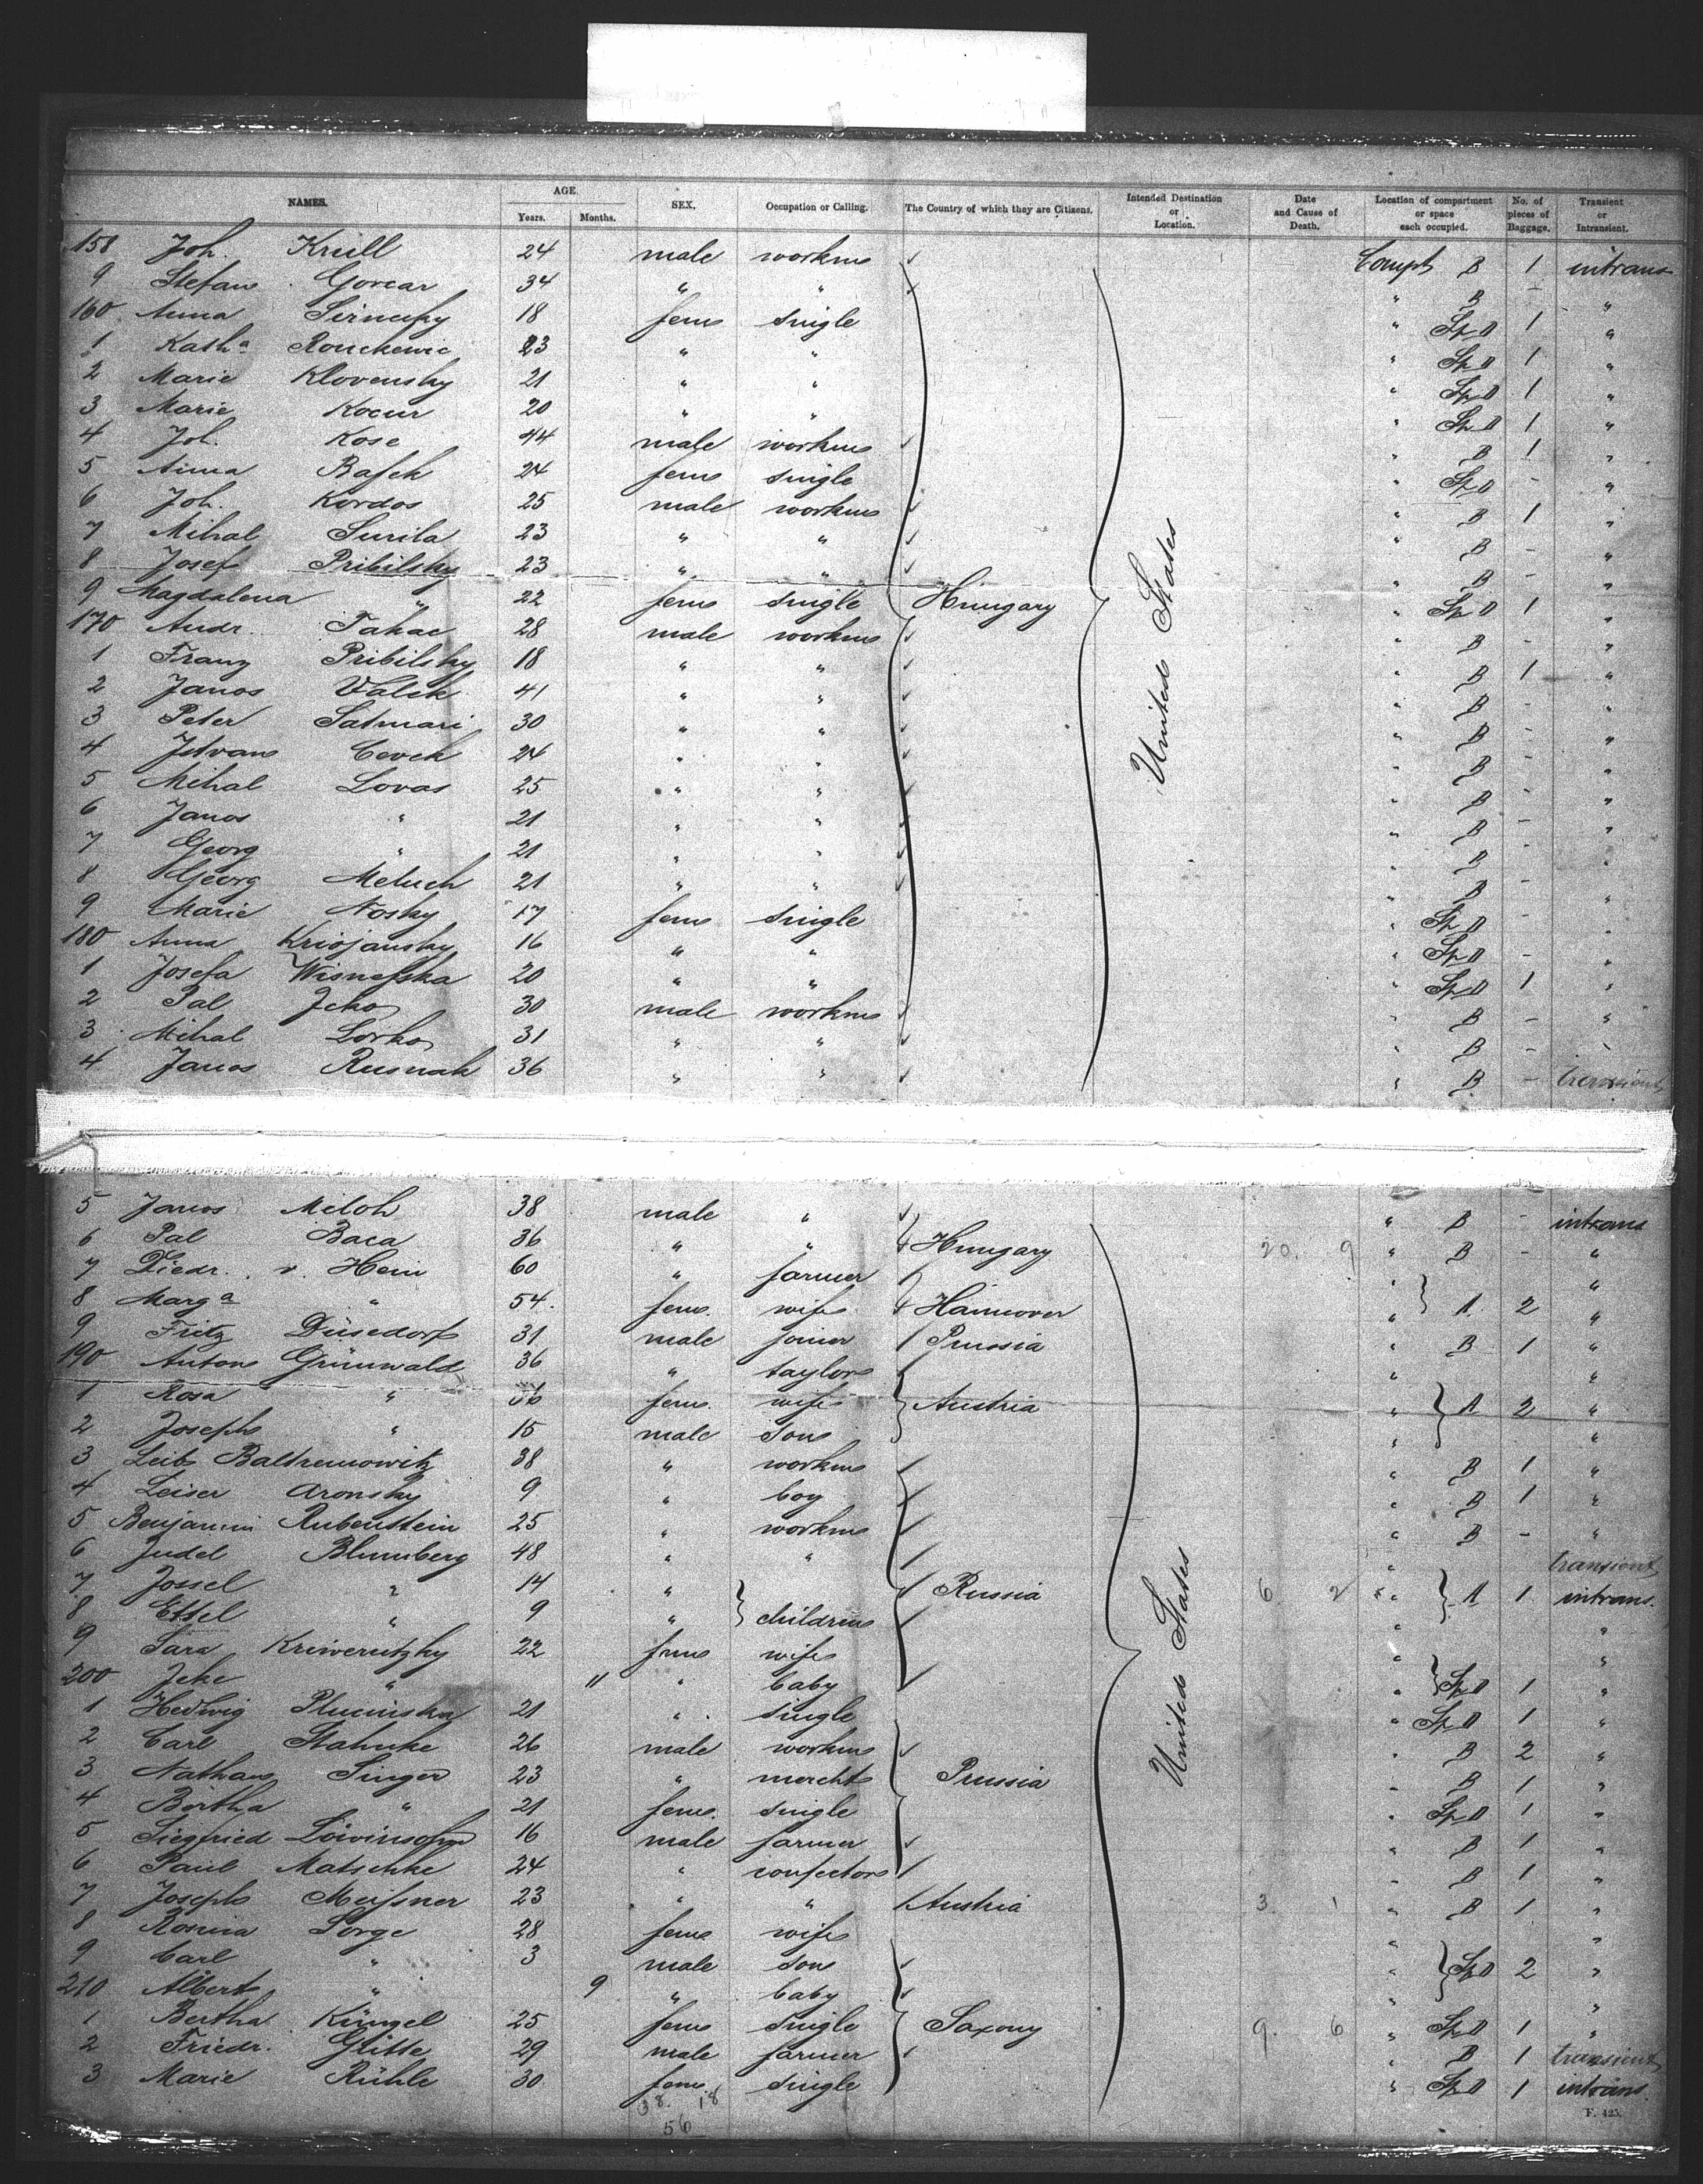 NAMES. AGE. SEX. Occupation or Calling. The Country of which they are Citizens. Intended Destination or Location. Date and Cause of Death. Location of compartment or space each occupied. No. of pieces of Baggage. Transient or Intransient.
Years. Months.
158 Joh. Krull 24 male workm Compt B 1 intrans
9 Stefan Gorcar 34 " " " B - "
160. Anna 18 fem single " Sp D 1 "
1 Kath a 23 " " " Sp D 1 "
2 Marie Klovensky 21 " " " Sp D 1 "
3 Marie Kocur 20 " " " Sp D 1 "
4 Joh. Kose 44 male workm " B 1 "
5 Anna 24 fem single " Sp D - "
6 Joh. Kordos 25 male workm " B 1 "
7 Mihal Surila 23 " " " B - "
8 Josef Pribilsky 23 " " " B - "
9 Magdalena " 22 fem single Hungary " Sp D 1 "
170 Andr. Takac 28 male workm " B - "
1 Franz Pribilsky 18 " " " B 1 "
2 Janos Valek 41 " " " B - "
3 Peter Satmari 30 " " " B - "
4 Istvan Cevek 24 " " " B - "
5 Mihal Lovas 25 " " " B - "
6 Janos " 21 " " " B - "
7 Georg " 21 " " " B - "
8 Georg Meluch 21 " " " B - "
9 Marie Nosky 17 fem single " Sp D - "
180 Anna Kriojansky 16 " " " Sp D - "
1 Josefa Wisnefska 20 " " " Sp D 1 "
2 Pal Jcko 30 male workm " B - "
3 Mihal Lorko 31 " " " B - "
4 Janos Rusnak 36 " " " B - transient
United States
5 Janos Miloh 38 male " " B - intrans
6 Pal Baca 36 " " Hungary 20. 9 " B - "
7 Diedr. v. Hein 60 " farmer " "
8 Marg a " 54. fem. wife Hannover " A. 2 "
9 Fritz Düsedorf 31 male joiner Prussia " B 1 "
190 Anton Grünwald 36 " taylor " "
1 Rosa " 36 fem. wife Austria " A 2 "
2 Joseph " 15 male son " "
3 Leib Baltremowitz 38 " workm " B 1 "
4 Leiser Aronsky 9 " boy " B 1 "
5 Benjamin Rubenstein 25 " workm " B - "
6 Judel Blumberg 48 " " " transient
7 Jossel " 14 " Russia 6 2 " A 1 intrans.
8 Ettel " 9 " children " "
9 Sara Kriwerutzky 22 fem wife " "
200 Jeke " 11 " baby " Sp D 1 "
1 Hedwig Plucinska 21 " single " Sp D 1 "
2 Carl Stahnke 26 male workm " B 2 "
3 Nathan Singer 23 " mercht Prussia " B 1 "
4 Bertha " 21 fem. single " Sp D 1 "
5 Siegfried Löwinsohn 16 male farmer " B 1 "
6 Paul Matschke 24 " confector " B 1 "
7 Joseph Meissner 23 " " Austria 3 1 " B 1 "
8 Rosina Sorge 28 fem wife " "
9 Carl " 3 male son " Sp D 2 "
210 Albert " 9 " baby " "
1 Bertha Küngel 25 fem single Saxony 9. 6 " Sp D 1 "
2 Friedr. Glitte 29 male farmer " B 1 transient
3 Marie Rühle 30 fem. single " Sp D 1 intrans.
United States
38. 18
56
F. 425.